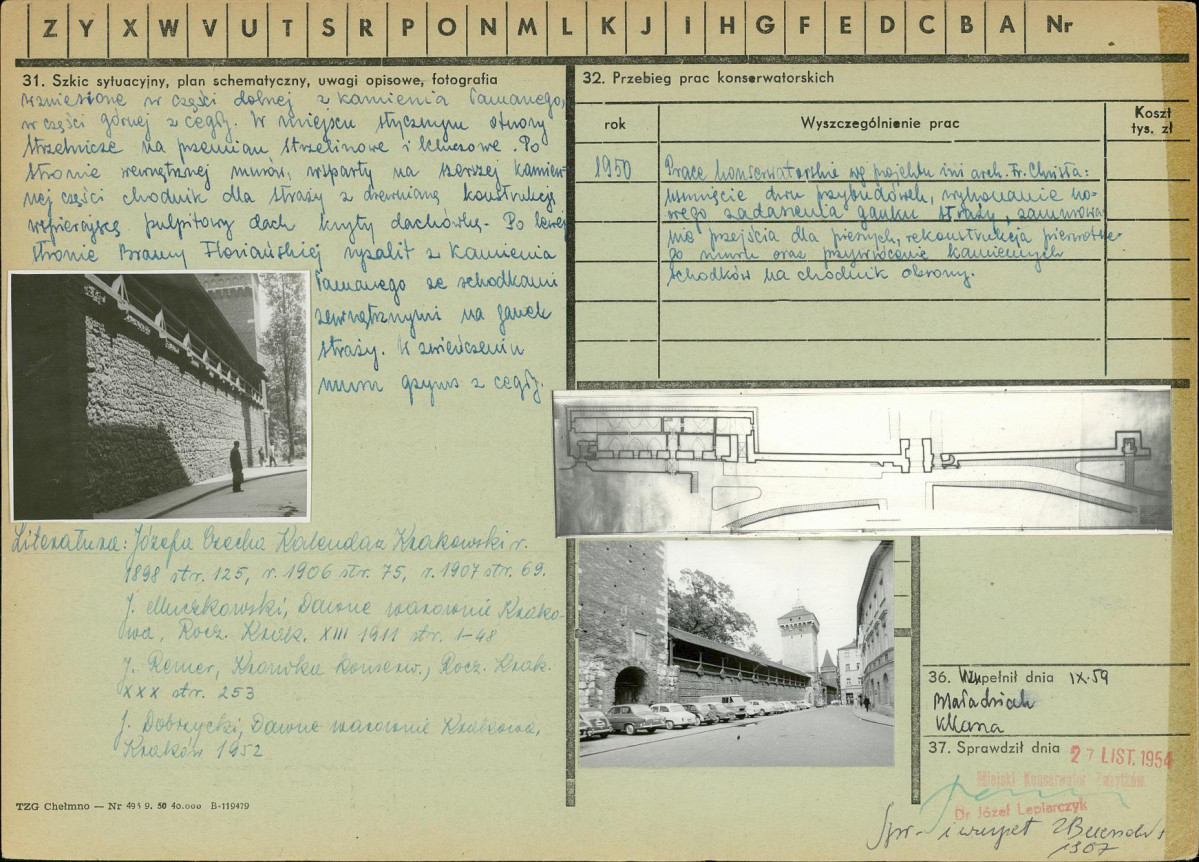 Z Y X W V U T S R P O N M L K J I H G F E D C B A Nr
31. Szkic sytuacyjny, plan schematyczny, uwagi opisowe, fotografia
wzniesione w części dolnej z kamienia łamanego,
w części górnej z cegły. W miejscu stycznym otwory
strzelnicze na przemian strzelinowe i kluczowe. Po
stronie wewnętrznej murów, wsparty na szerszej kamien-
nej części chodnik dla straży z drewnianą konstrukcją
wspierającą pulpitowy dach kryty dachówką. Po lewej
stronie Bramy Floriańskiej wyzalit z kamienia
łamanego ze schodkami
zewnętrznymi na ganek
straży. W zwieńczeniu
muru gzyms z cegły.
Literatura: Józefa Czecha Kalendarz Krakowski r.
1898 str. 125, r. 1906 str. 75, r. 1907 str. 69.
J. Muczkowski, Dawne warownie Krako-
wa, Rocz. Krak. XIII 1911 str. 1-48
J. Remer, Kronika konserw., Rocz. Krak.
XXX str. 253
J. Dobrzycki, Dawne warownie Krakowa,
Kraków 1952
TZG Chełmno — Nr 495 9. 50 40.000 B-119479
32. Przebieg prac konserwatorskich
rok
Wyszczególnienie prac
Koszt
tys. zł
1950 Prace konserwatorskie wg projektu inż arch. Fr. Christa:
usunięcie dwu przybudówek, wykonanie no-
wego zadaszenia ganku straży, zamurowa-
nie przejścia dla pieszych, rekonstrukcja pierwotne-
go muru oraz przywrócenie kamiennych
schodków na chodnik obrony.
36. Wypełnił dnia IX.59
37. Sprawdził dnia 27 LIST. 1954
Miejski Konserwator Zabytków
Dr Józef Lepiarczyk
Spr. i